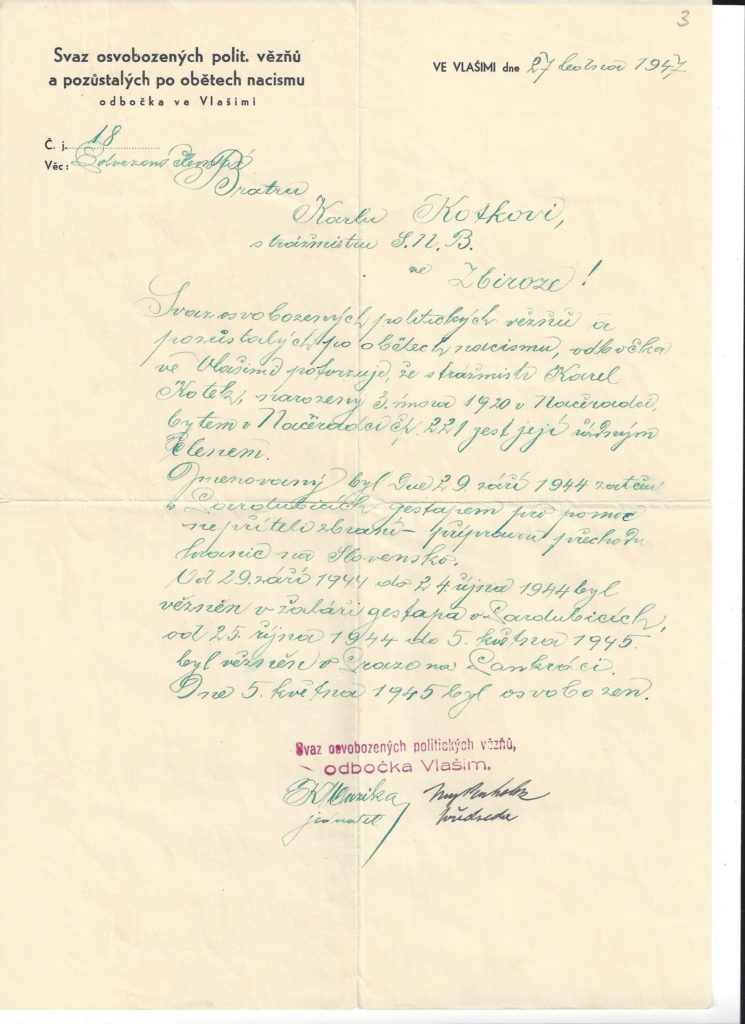 3
Svaz osvobozených polit. vězňů
a pozůstalých po obětech nacismu
odbočka ve Vlašimi
VE VLAŠIMI dne 27 ledna 1947
Č. j. 18
Věc:
Bratru
Karlu Kotkovi,
strážmistru S.N.B.
ve Zbiroze!
Svaz osvobozených politických vězňů a
pozůstalých po obětech nacismu, odbočka
ve Vlašimi potvrzuje, že strážmistr Karel
Kotek, narozený 3. února 1920 v Načeradci,
bytem v Načeradci čp. 221 jest její řádným
členem.
Jmenovaný byl dne 29. září 1944 zatčen
v Pardubicích gestapem pro pomoc
nepříteli zbraní - přípravu přechodu
hranic na Slovensko.
Od 29. září 1944 do 24. října 1944 byl
vězněn v žaláři gestapa v Pardubicích,
od 25. října 1944 do 5. května 1945.
byl vězněn v Praze na Pankráci.
Dne 5. května 1945 byl osvobozen.
Svaz osvobozených politických vězňů,
odbočka Vlašim.
Muzika
jednatel předseda